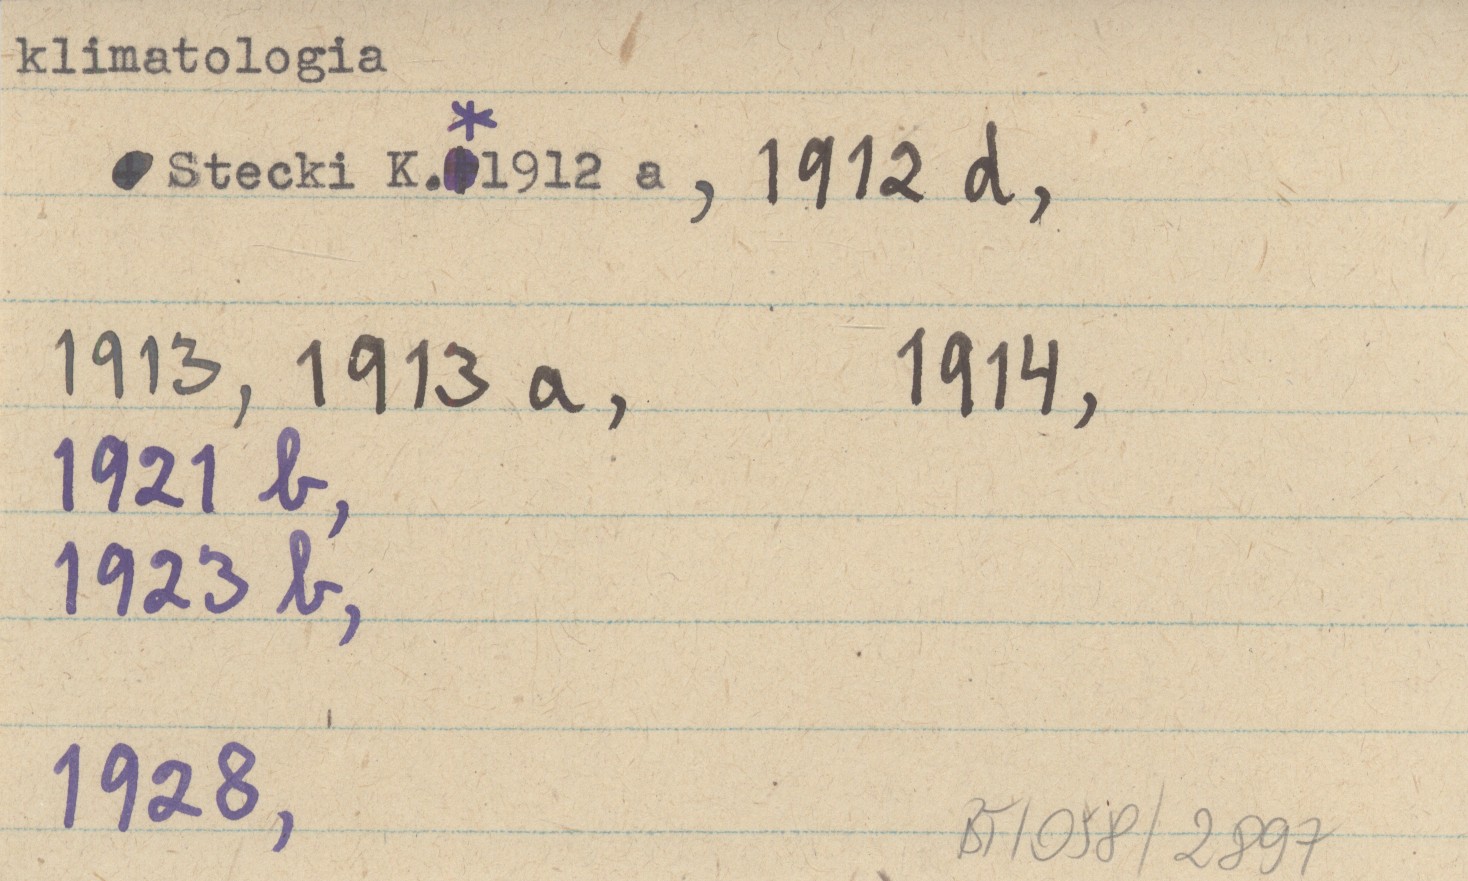 klimatologia
Stecki K.*1912 a, 1912 d,
1913, 1913 a, 1914,
1921 b,
1923 b,
1928,
BT/058/2897